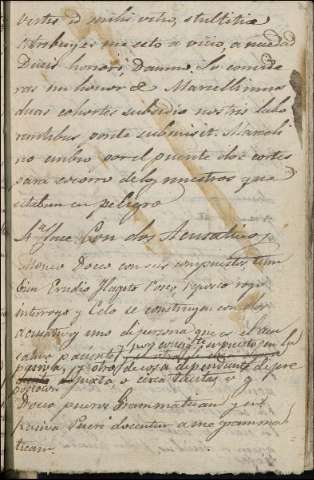 vertis id mihi vitio, stultitiæ
Atribuyes me esto a vicio, a necedad
Ducis honori Damno. lo conside
ras un honor &. Marcellinus
duas cohortes subsidio nostris labo
rantibus ponte submissit. Marceli
no embio por el puente dos cortes
para socorro de los nuestros que
estaban en peligro
Con dos Acusativos
Moneo Doceo con sus compuestos, tam
bien Erudio Flagito Posco Reposco rogo
interrogo y Celo se construyen con dos
acusativos uno de persona que es el
paciente
persona, y otro de cosa dependiente de pre
posicion juxta o circa v g
Doceo pueros Grammaticam y en
Pasiva Pueri docentur a me gramma
ticam.